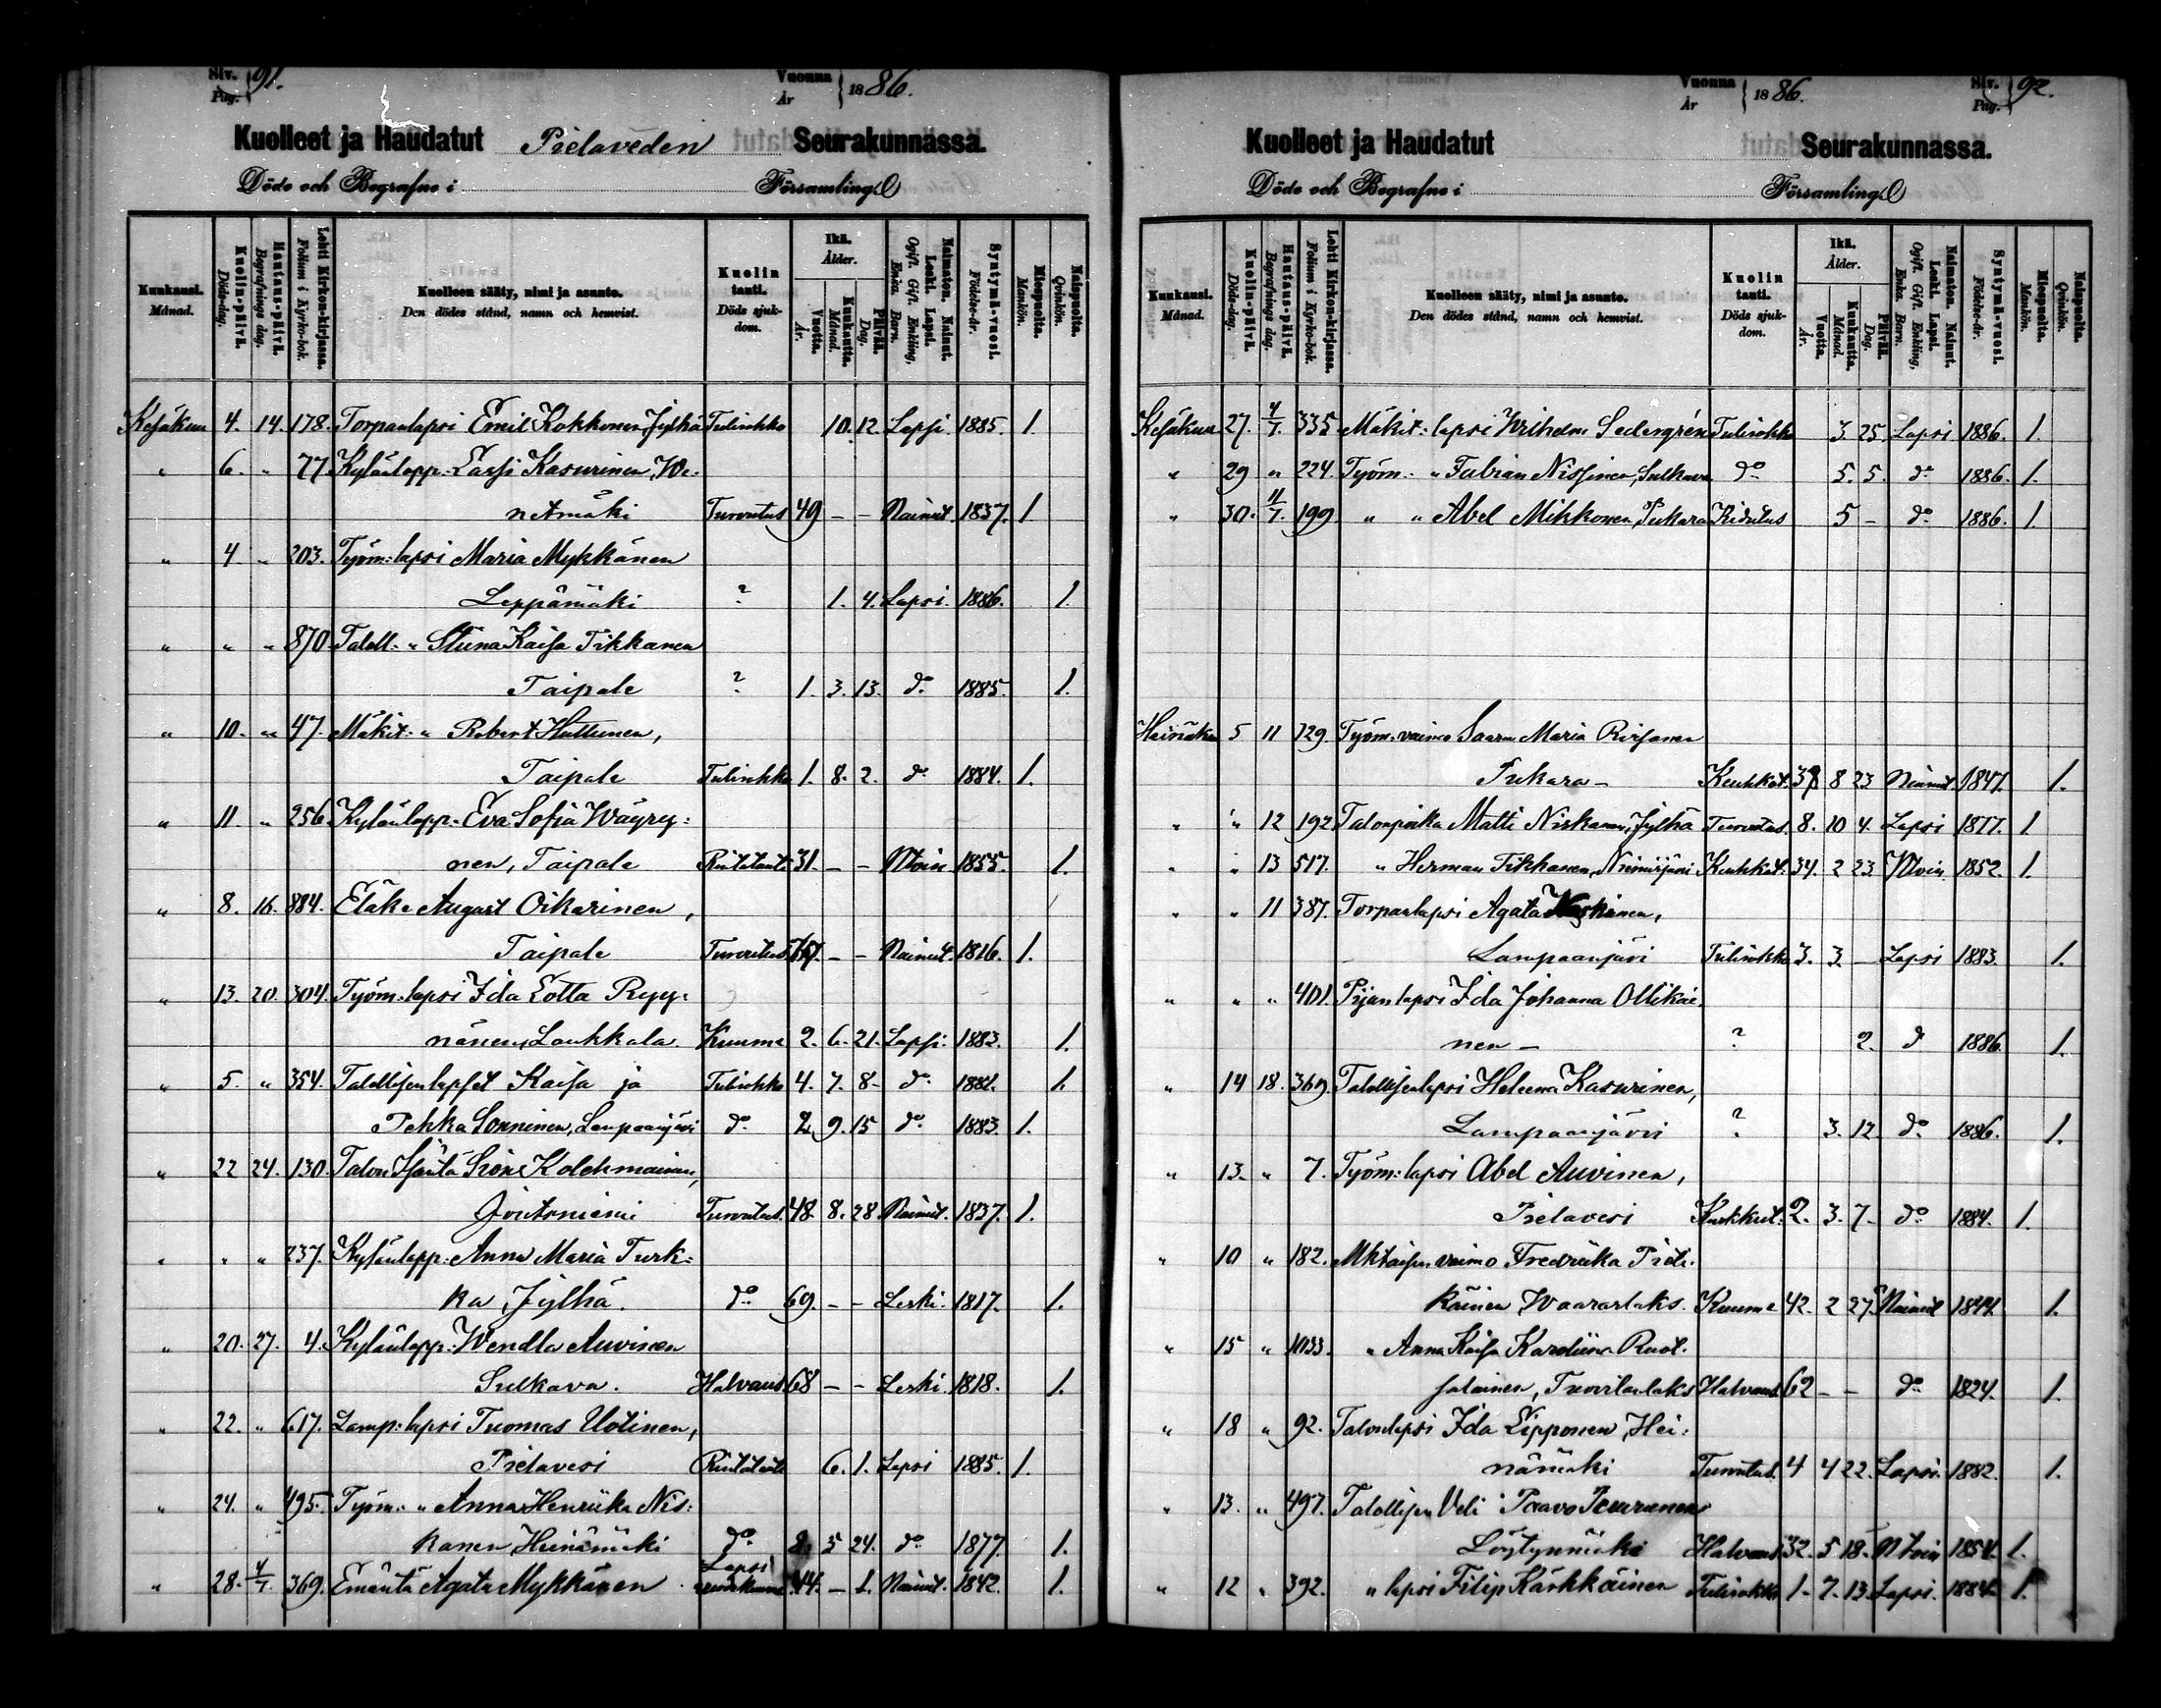 Siv. Pag. 91. Vuonna År 1886.
Kuolleet ja Haudatut Pielaveden Seurakunnassa.
Döde och Begrafne i Församling
Kuukausi. Månad. Kuolin-päivä. Döds-dag. Hautaus-päivä. Begrafnings dag. Lehti Kirkon-kirjassa. Folium i Kyrko-bok. Kuolleen sääty, nimi ja asunto. Den dödes stånd, namn och hemvist. Kuolin tauti. Döds sjukdom. Ikä. Ålder. Vuotta. År. Kuukautta. Månad. Päivää. Dag. Naimaton. Nainut. Leski. Lapsi. Ogift. Gift. Enkling, Enka. Barn. Syntymä-vuosi. Födelse-år. Miespuolta. Mankön. Naispuolta. Qvinkön.
Kesäkuu 4. 14. 178. Torpanlapsi Emil Kokkonen, Jylhä Tulirokko 10. 12. Lapsi 1885. 1.
" 6. " 77 Kylänlapp. Lassi Kasurinen, We-
netmäki Turvotus 49 - - Nainut. 1837. 1
" 4. " 203. Työm: lapsi Maria Mykkänen
Leppämäki ? 1. 4. Lapsi. 1886. 1.
" " " 870 Taloll: " Stina Kaisa Tikkanen
Taipale ? 1. 3. 13. do. 1885. 1.
" 10. " 47. Mäkit: " Robert Huttunen,
Taipale Tulirokko 1. 8. 2. do. 1884. 1.
" 11. " 256 Kylänlapp. Eva Sofia Wäyry-
nen, Taipale Rintatauti 31. - - Ntoin 1855. 1.
" 8. 16. 884. Eläke August Oikarinen,
Taipale Turvotus - - Nainut. 1816. 1.
" 13. 20. 304. Työm: lapsi Ida Lotta Ryy-
nänen, Laukkala. Kuume 2. 6. 21. Lapsi. 1883. 1.
" 5. " 354. Talollisen lapset Kaisa ja Tulirokko 4. 7. 8. do. 1882. 1.
Pekka Sonninen, Lampaanjärvi do. 2. 9. 15 do. 1883. 1.
" 22 24. 130. Talon Kolehmainen,
Joutsniemi Turvotus. 48. 8. 28 Nainut. 1837. 1.
" " " 237. Kylänlapp. Anna Maria Turk-
ka, Jylhä. do. 69. - - Leski. 1817. 1.
" 20. 27. 4. Kylänlapp: Wendla Auvinen
Sulkava. Halvaus 68 - - Leski. 1818. 1.
" 22. " 617. Lamp: lapsi Tuomas Uotinen,
Pielavesi Rintatauti 6. 1. Lapsi 1885. 1.
" 24. " 495. Työm: " Anna Henriika Nis-
kanen, Heinämäki do. 8. 5 24. do. 1877. 1.
" 28. 4/7. 369. Emäntä Agata Mykkänen Lapsi 44. - 1. Nainut. 1842. 1.
Vuonna År 1886. Siv. Pag. 92.
Kuolleet ja Haudatut Seurakunnassa.
Döde och Begrafne i Församling
Kuukausi. Månad. Kuolin-päivä. Döds-dag. Hautaus-päivä. Begrafnings dag. Lehti Kirkon-kirjassa. Folium i Kyrko-bok. Kuolleen sääty, nimi ja asunto. Den dödes stånd, namn och hemvist. Kuolin tauti. Döds sjukdom. Ikä. Ålder. Vuotta. År. Kuukautta. Månad. Päivää. Dag. Naimaton. Nainut. Leski. Lapsi. Ogift. Gift. Enkling, Enka. Barn. Syntymä-vuosi. Födelse-år. Miespuolta. Mankön. Naispuolta. Qvinkön.
Kesäkuu 27. 4/7. 335 Mäkit: lapsi Wilhelm Sedergrén Tulirokko 3. 25. Lapsi 1886. 1.
" 29 " 224. Työm: " Fabian Nissinen, Sulkava do. 5. 5. do. 1886. 1.
" 30. 11/7. 199 " " Abel Mikkonen, Pukara Ridutus 5 - do. 1886. 1.
Heinäkuu 5 11 129. Työm. vaimo Saara Maria Rissanen
Pukara - Keuhkot. 38 8 23 Nainut. 1847. 1.
" " 12 192 Talonpoika Matti Niskanen, Jylhä Turvotus. 8. 10 4. Lapsi 1877. 1
" " 13 517. " Herman Tikkanen, Niemisjärvi Keuhkot. 34. 2 23 Ntoin 1852. 1.
" " 11 387. Torpanlapsi Agata,
Lampaanjärvi Tulirokko 3. 3. - Lapsi 1883. 1.
" " " 401. Pijan lapsi Ida Johanna Ollikai-
nen - ? 2. do 1886. 1.
" 14 18. 369. Talollisenlapsi Heleena Kasurinen,
Lampaanjärvi ? 3. 12. do. 1886. 1.
" 13. " 7. Työm: lapsi Abel Auvinen,
Pielavesi 2. 3. 7. do. 1884. 1.
" 10 " 182. vaimo Fredriika Pieti-
käinen, Waaraslaks. Kuume 42. 2 27. Nainut 1844. 1.
" 15 " 1033. " Anna Kaisa Karoliina Ruot-
salainen, Tuovilanlaks Halvaus 62 - - do. 1824. 1.
" 18 " 92. Talonlapsi Ida Lipponen, Hei-
nämäki Turvotus. 4 4 22. Lapsi. 1882. 1.
" 13. " 497. Talollisen Veli Paavo Puuranen
Löytynmäki Halvaus 32. 5 18. Ntoin 1854. 1.
" 12 " 392. " lapsi Filip Kärkkäinen Tulirokko 1. 7. 13 Lapsi. 1884. 1.